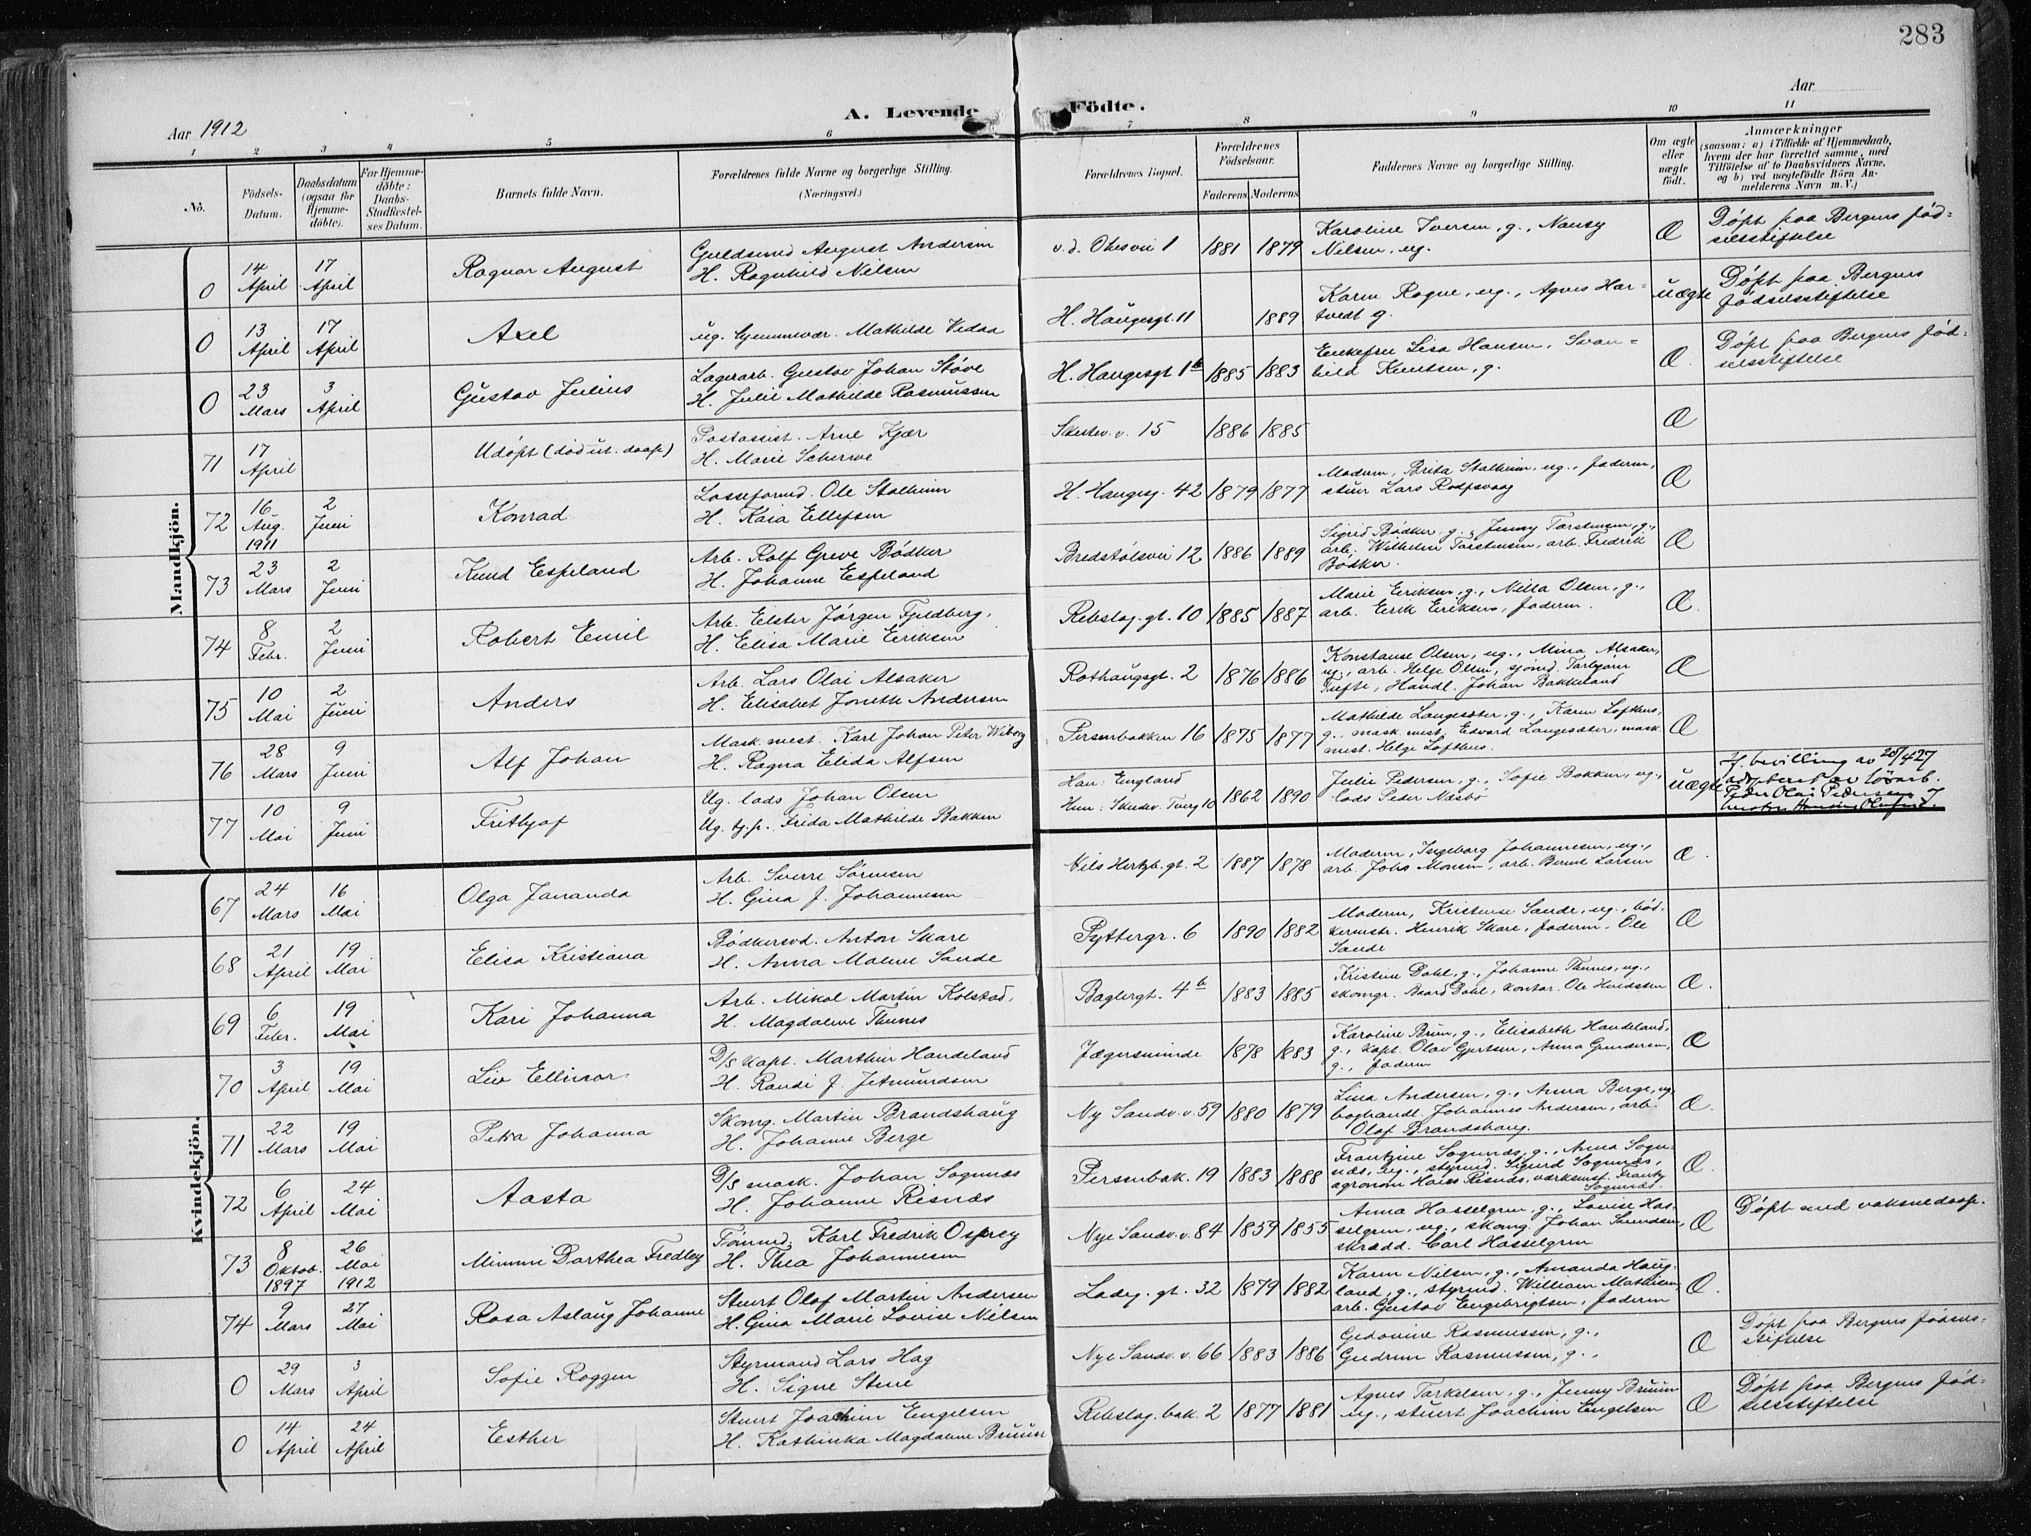 283
A. Levende Födte.
Aar 1912
Aar
1 2 3 4 5 6 7 8 9 10 11
No.
Födsels-Datum.
Daabsdatum (ogsaa for Hjemmedöbte).
For Hjemmedöbte: Daabs-Stadfæstelses Datum.
Barnets fulde Navn.
Forældrenes fulde Navne og borgerlige Stilling. (Næringsvei.)
Forældrenes Bopæl.
Forældrenes Födselsaar.
Faderens Moderens
Faddernes Navne og borgerlige Stilling.
Om ægte eller uægte födt.
Anmærkninger
(saasom: a) i Tilfælde af Hjemmedaab, hvem der har forrettet samme, med Tilföielse af to Daabsvidners Navne, og b) ved uægtefödte Börn Anmelderens Navn m. V.)
Mandkjön.
0 14 April 17 April Ragnar August
Guldsmed August Andersen
H. Ragnhild Nilsen
1881 1879 Karoline Iversen, g., Nancy
Nilsen, ug.
Æ
Døpt paa Bergens fød-
selsstiftelse
0 13 April 17 April Axel
ug. Mathilde Vedaa
H. Haugesgt. 11 1889
Karen Rogne, ug., Agnes Har-
tvedt g.
uægte
Døpt paa Bergens
fødselsstiftelse
0 23 Mars 3 April Gustav Julius
Lagerarb. Gustav Johan Støve
H. Julie Mathilde Rasmussen
H. Haugesgt 1b 1885 1883
Enkefru Lisa Hansen, Svan-
hild Knutsen, g.
Æ.
Døpt paa Bergens fød-
selsstiftelse
71 17 April Udøpt (død ut. daap)
Postassist. Arne Kjær
H. Marie Scherwe
15 1886 1885 Æ
72 16 Aug. 1911 2 Juni Konrad
Losseformd. Ole Stalheim
H. Kaia Ellefsen
H. Haugesg. 42 1879 1877
Moderen, Brita Stalheim, ug., faderen,
stuer Lars
Æ
73 23 Mars 2 Juni Knud Espeland
Arb. Rolf Greve Bødker
H. Johanne Espeland
Bredstølsvei 12 1886 1889
Sigrid Bødker, g., Jenny Torstensen, g.,
arb. Wilhelm Torstensen, arb. Fredrik
Bødker.
Æ
74 8 Febr. 2 Juni Robert Emil
Arb. Elster Jørgen Fjeldberg,
H. Elisa Marie Eriksen
Rebslag.gt. 10 1885 1887
Marie Eriksen, g., Nilla Olsen, g.,
arb. Erik Eriksen, faderen.
Æ.
75 10 Mai 2 Juni Anders
Arb. Lars Olai Alsaker
H. Elisabet Jonette Andersen
Rothaugsgt. 2 1876 1886
Konstanse Olsen, ug., Mina Alsaker,
ug., arb. Helge Olsen, sjømd. Torbjørn
Tufte, Handl. Johan Bakkeland
Æ
76 28 Mars 9 Juni Alf Johan
Mask.mest. Karl Johan Peter Wiborg
H. Ragna Elida Alfsen
Persenbakken 16 1875 1877
Mathilde Langesæter, g., Karen Lofthus,
g., mask.mest. Edvard Langesæter, mask.
mest. Helge Lofthus.
Æ
77 10 Mai 9 Juni Fritjof
Ug. lods Johan Olsen
Ug. tj.p. Frida Mathilde Bakken
Han: England
Hun: Skudev. Tverg 10 1862 1890
Julie Pedersen, g., Sofie Bakken, ug.,
lods Peder Næsbø
uægte
If. bevilling av 20/4 27
adopteret av
Peder Olai Pedersen
Kvindekjön.
67 24 Mars 16 Mai Olga Jananda
Arb. Sverre Sørensen
H. Gina J. Johannesen
Nils Hertzb.gt. 2 1887 1878
Moderen, Ingeborg Johannesen, ug.,
arb. Johs Monsen, arb. Bernt Larsen
Æ.
68 21 April 19 Mai Elisa Kristiana
Bødkersvd. Anton Skare
H. Anna Maline Sande
Pyttergr. 6 1890 1882
Moderen, Kristense Sande, ug., bød-
kermstr. Henrik Skare, faderen, Ole
Sande
Æ
69 6 Febr. 19 Mai Kari Johanna
Arb. Mikal Martin Kolstad,
H. Magdalene Thunes
Baglergt. 4b 1883 1885
Kristine Dahl, g., Johanne Thunes, ug.,
skomgr. Baard Dahl, kontor. Ole Hvidsten
Æ.
70 3 April 19 Mai Liv Ellinor
D/S kapt. Marthin Handeland
H. Randi J. Jetmundsen
Jægersminde 1878 1883
Karoline Brun, g., Elisabeth Handeland,
g., kapt. Olav Gjertsen, Anna Gundersen,
g., faderen
Æ
71 22 Mars 19 Mai Petra Johanna
Skomg. Martin Brandshaug
H. Johanne Berge
Ny Sandv.v. 59 1880 1879
Lina Andersen, g., Anna Berge, ug.
boghandl. Johannes Andersen, arb.
Olaf Brandshaug.
Æ.
72 6 April 24 Mai Aasta
D/S mask. Johan Sognnæs
H. Johanne Risnæs
Persenbak. 19 1883 1888
Frantzine Sognnæs, g., Anna Sogn-
næs, ug., styrmd. Sigurd Sognnæs,
agronom Hans Risnæs, værksmst. Frantz
Sognnæs.
Æ.
73 8 Oktob. 1897 26 Mai 1912 Mimmi Darthea Fredley
Tømmd. Karl Fredrik Osprey
H. Thea Johannesen
Nye Sandv.v. 84 1859 1855
Anna Hasselgren, g., Lovise Has-
selgren, ug., skomg. Johan Svendsen,
skrædd. Carl Hasselgren
Æ
Døpt ved voksnedaap.
74 9 Mars 27 Mai Rosa Aslaug Johanne
Stuert Olaf Martin Andersen
H. Gina Marie Lovise Nilsen
Ladeg.gt. 32 1879 1882
Karen Nilsen, g., Amanda Haug-
land, g., styrmd. William Mathisen,
arb. Gustav Engebrigtsen, faderen
Æ.
0 29 Mars 3 April Sofie Roggen
Styrmand Lars Hag
H. Signe Stene
Nye Sandv.v. 66 1883 1886
Gedovine Rasmussen, g.,
Gudrun Rasmussen, g.,
Æ
Døpt paa Bergens fødsels-
stiftelse
0 14 April 24 April Esther
Stuert Joachim Engelsen
H. Kathinka Magdalene Bruun
Rebslag.bak. 2 1877 1881
Agnes Torkelsen, g., Jenny Bruun
ug., stuert Joachim Engelsen
Æ
Døpt paa Bergens fød-
selsstiftelse